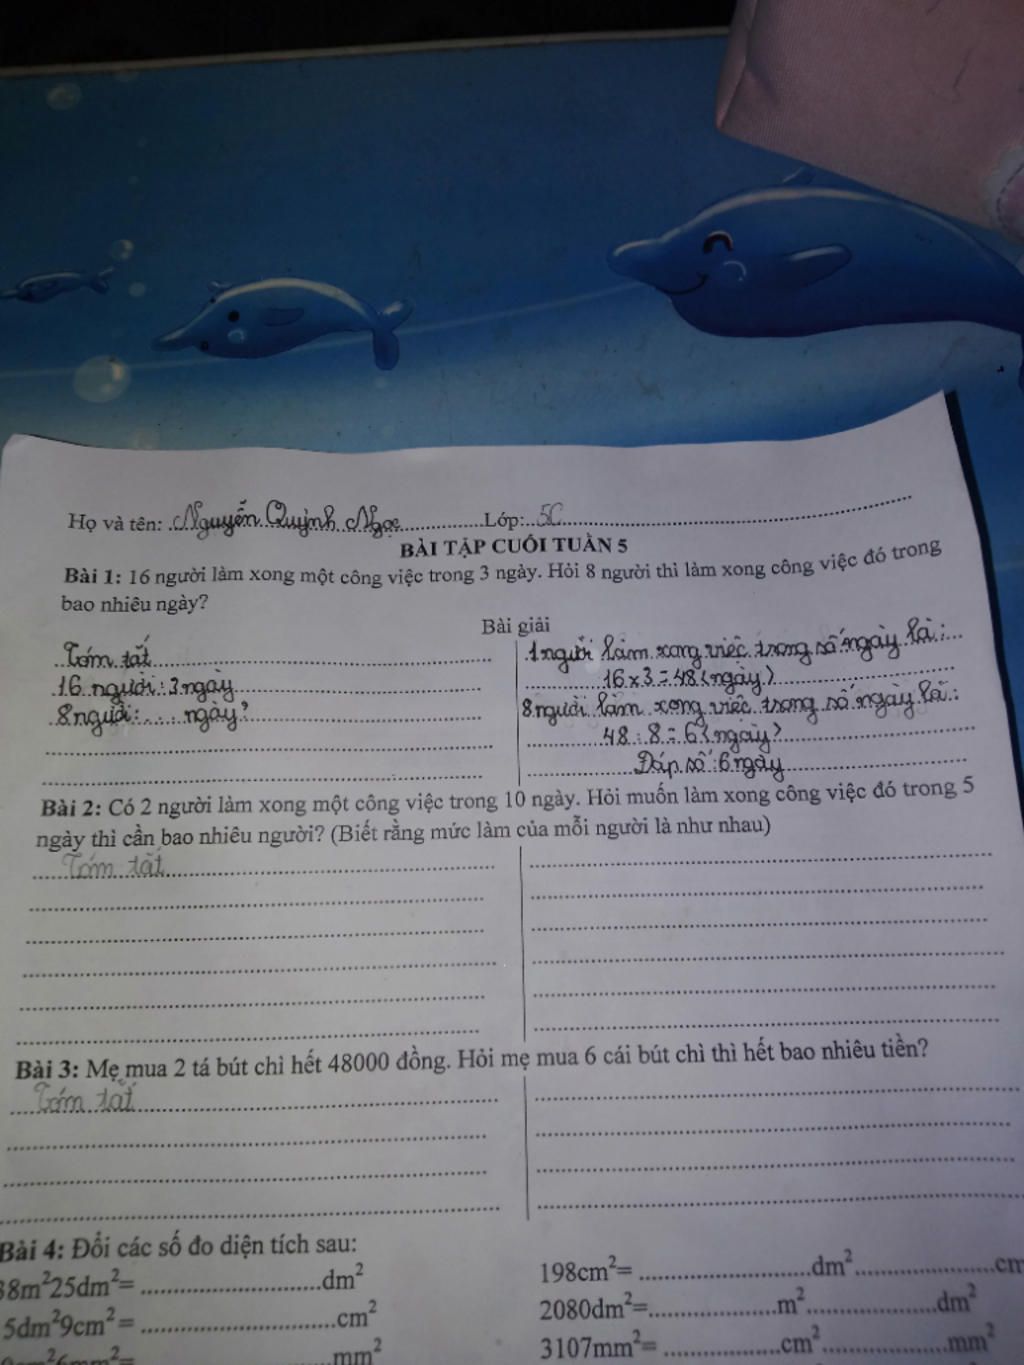 Họ và tên: Nguyễn Quỳnh Ngọc Lớp: 5C
BÀI TẬP CUỐI TUẦN 5
Bài 1: 16 người làm xong một công việc trong 3 ngày. Hỏi 8 người thì làm xong công việc đó trong
bao nhiêu ngày?
Bài giải
Tóm tắt
16 người: 3 ngày
8 người: ..... ngày?
1 người làm xong việc trong số ngày là:
16 x 3 = 48 (ngày)
8 người làm xong việc trong số ngày là:
48 : 8 = 6 (ngày)
Đáp số: 6 ngày
Bài 2: Có 2 người làm xong một công việc trong 10 ngày. Hỏi muốn làm xong công việc đó trong 5
ngày thì cần bao nhiêu người? (Biết rằng mức làm của mỗi người là như nhau)
Tóm tắt
Bài 3: Mẹ mua 2 tá bút chì hết 48000 đồng. Hỏi mẹ mua 6 cái bút chì thì hết bao nhiêu tiền?
Tóm tắt
Bài 4: Đổi các số đo diện tích sau:
38m²25dm²= ..............................dm²
198cm²= ............................dm².......................cm
5dm²9cm² = .................................cm²
2080dm²=.....................m².....................dm²
mm²
3107mm²= ...................cm²....................mm²